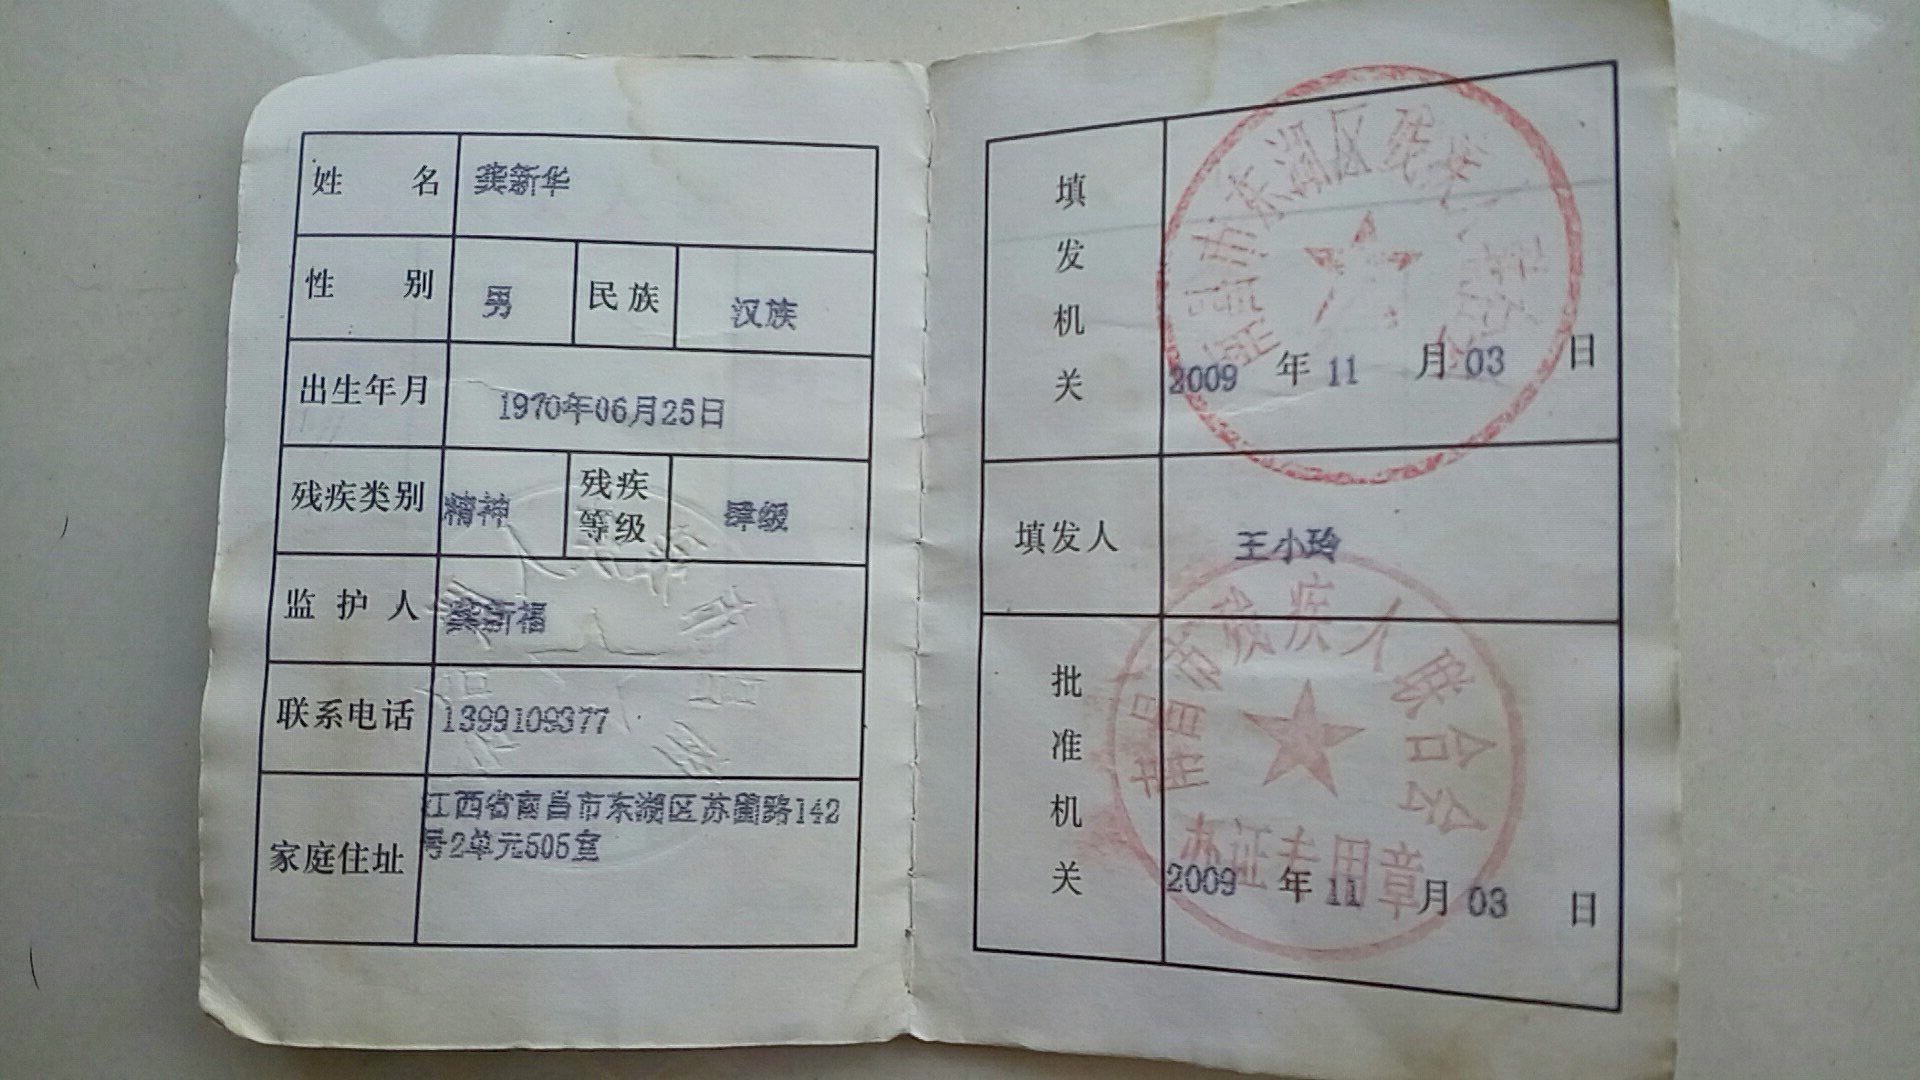 姓 名 龚新华
性 别 男 民族 汉族
出生年月 1970年06月25日
残疾类别 精神 残疾等级 肆级
监护人 龚新福
联系电话 1399109377
家庭住址 江西省南昌市东湖区苏圃路142
号2单元505室
填发机关
南昌市东湖区残疾人联合会
2009 年 11 月 03 日
填发人 王小玲
批准机关
南昌市残疾人联合会
办证专用章
2009 年 11 月 03 日